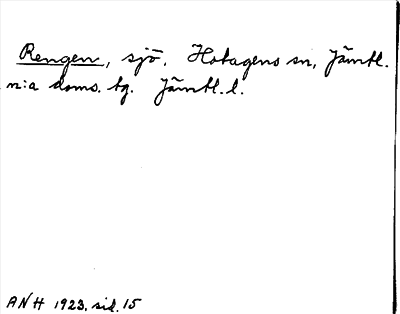 Rengen, sjö. Hotagens sn, Jämtl.
n:a doms. tg. Jämtl. l.
ANH 1923, sid. 15